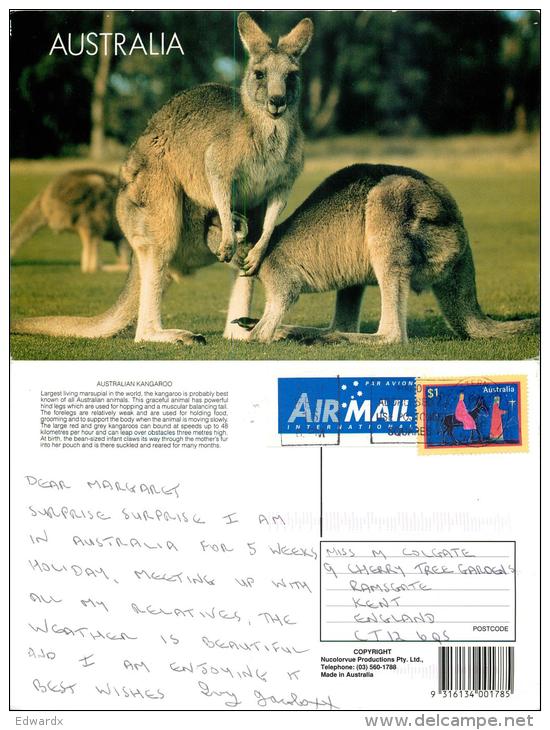 AUSTRALIA
AUSTRALIAN KANGAROO
Largest living marsupial in the world, the kangaroo is probably best
known of all Australian animals. This graceful animal has powerful
hind legs which are used for hopping and a muscular balancing tail.
The forelegs are relatively weak and are used for holding food,
grooming and to support the body when the animal is moving slowly.
The large red and grey kangaroos can bound at speeds up to 48
kilometres per hour and can leap over obstacles three metres high.
At birth, the bean-sized infant claws its way through the mother's fur
into her pouch and is there suckled and reared for many months.
PAR AVION
AIR MAIL
INTERNATIONAL
$1 Australia
DEAR MARGARET
SURPRISE SURPRISE I AM
IN AUSTRALIA FOR 5 WEEKS
HOLIDAY, MEETING UP WITH
ALL MY RELATIVES, THE
WEATHER IS BEAUTIFUL
AND I AM ENJOYING IT
BEST WISHES
MISS M COLGATE
9 CHERRY TREE GARDENS
RAMSGATE
KENT
ENGLAND
CT12 6QS
POSTCODE
COPYRIGHT
Nucolorvue Productions Pty. Ltd.,
Telephone: (03) 560-1788
Made in Australia
9 316134 001785
Edwardx
delcampe.net